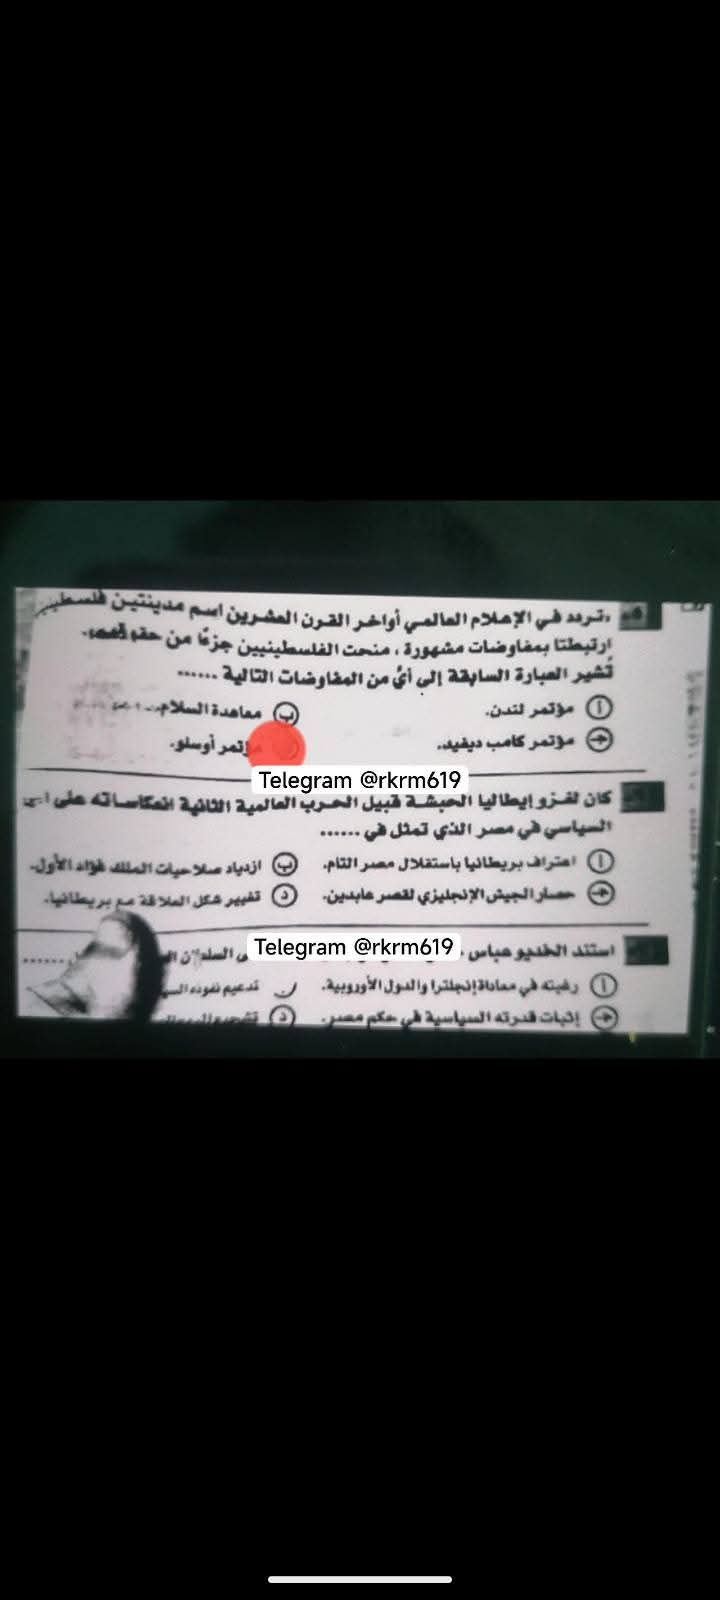 «تردد في الإعلام العالمي أواخر القرن العشرين اسم مدينتين
ارتبطتا بمفاوضات مشهورة، منحت الفلسطينيين جزءًا من
تُشير العبارة السابقة إلى أيٌ من المفاوضات التالية ......
أ مؤتمر لندن. ب معاهدة السلام.
ج مؤتمر كامب ديفيد. مؤتمر أوسلو.
Telegram @rkrm619
كان لغزو إيطاليا الحبشة قبيل الحرب العالمية الثانية انعكاساته على
السياسي في مصر الذي تمثل في ......
أ اعتراف بريطانيا باستقلال مصر التام. ب ازدياد صلاحيات الملك فؤاد الأول.
ج حصار الجيش الإنجليزي لقصر عابدين. د تغيير شكل العلاقة مع بريطانيا.
Telegram @rkrm619
استند الخديو عباس ......
أ رغبته في معاداة إنجلترا والدول الأوروبية. تدعيم نفوذه
ج إثبات قدرته السياسية في حكم مصر. د